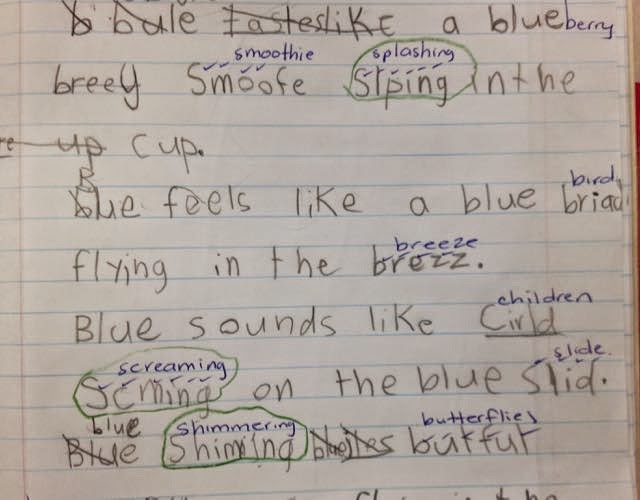 b bule tasteslike a blueberry
smoothie splashing
breey Smoofe Siping in the
re up cup.
B bird
blue feels like a blue briad
breeze
flying in the brezz.
children
Blue sounds like Cirld
screaming slide.
Scming on the blue slid.
blue shimmering butterflies
Blue Shiming butfut